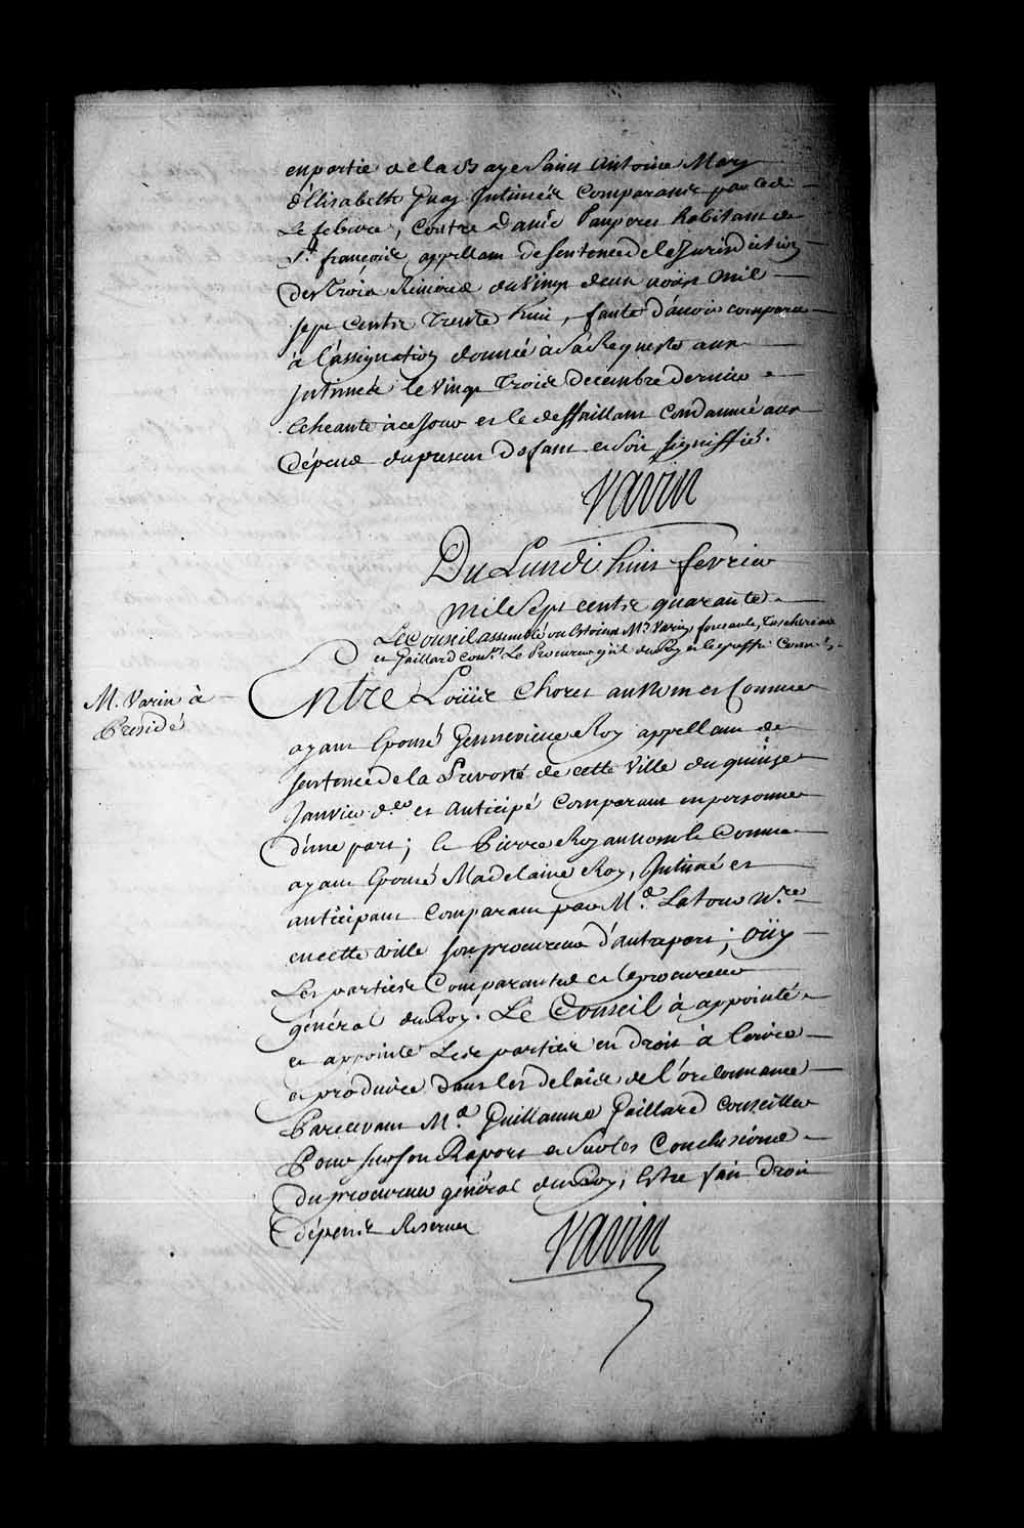 en partie de la Baye Saint Antoine Mary
d'Elisabeth Guay Intimés comparans par led.
Lefebvre, Contre Daniel Pauperet habitant de
St. françois appellant de Sentence de la Jurisdiction
des Trois Rivieres du vingt deux aoust mil
sept cents Trente huit, faute d'avoir comparu
à l'assignation donnée à Sa Requeste aux
Intimés le vingt Trois decembre dernier
Echeante à ce Jour et le deffaillant Condamné aux
dépens du present Défaut et Soit signiffié.
Varin
Du Lundi huit fevrier
mil Sept cents quarante
Le Conseil assemblé ou Estoient Mrs. Varin foucault, Cuschereau
et Gaillard Conrs. Le Procureur gnl du Roy et le greffier Comis
M. Varin à
Présidé
Entre Loüis Chores au Nom et Comme
ayant Epousé Gennevieve Roy appellant de
sentence de la Prevosté de cette Ville du quinze
Janvier der. et anticipé Comparant en personne
d'une part; Et Pierre Roy au nom et Comme
ayant Epousé Madelaine Roy, Intimé et
anticipant Comparant par Me. Latour Nre.
en cette Ville son procureur d'autre part; Oüy
Les parties Comparantes et le procureur
général du Roy. Le Conseil à appointé
et appointe Les parties en Droit à Ecrire
et produire dans les delais de l'ordonnance
Pardevant Me. Guillaume Gaillard Conseiller
Pour sur son Raport et Sur les Conclusions
du procureur général du Roy, Estre fait droit
dépens Reservez
Varin